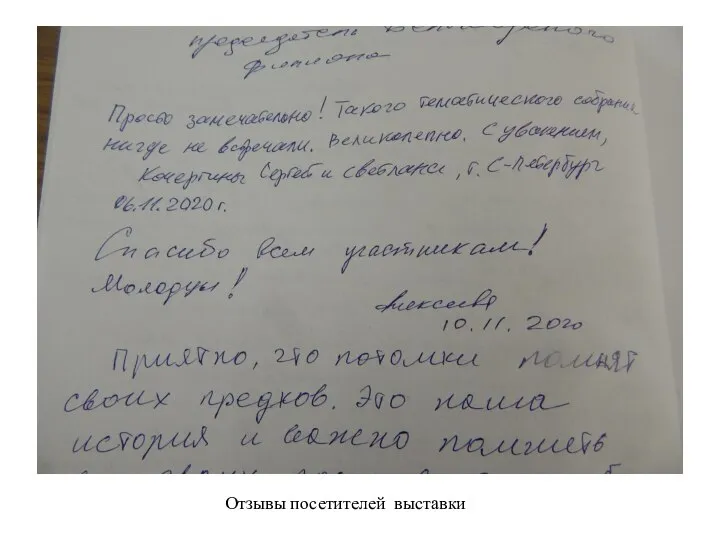 председатель
филиала
Просто замечательно! Такого тематического собрания
нигде не встречали. Великолепно. С уважением,
Кочергины Сергей и Светлана, г. С-Петербург
06.11.2020 г.
Спасибо всем участникам!
Молодцы!
10.11.2020
Приятно, что потомки помнят
своих предков. Это наша
история и важно помнить
Отзывы посетителей выставки